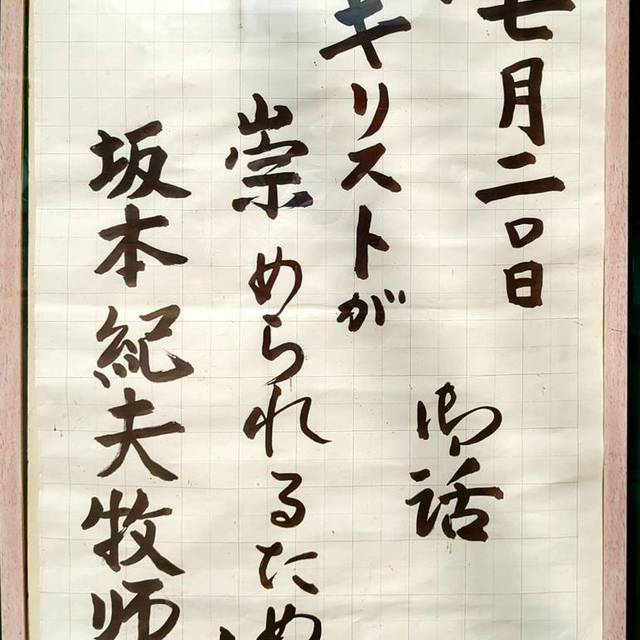 七月二〇日
御話
キリストが
崇められるため
坂本紀夫牧師